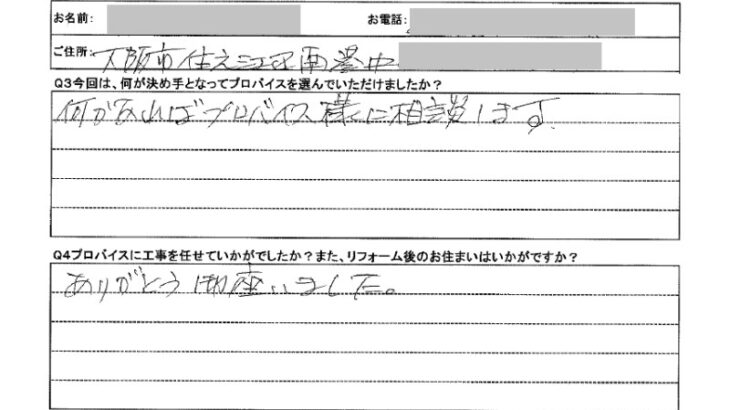 お名前: お電話:
ご住所: 大阪市住之江区南港中
Q3今回は、何が決め手となってプロバイスを選んでいただけましたか?
何かあればプロバイス様に相談します。
Q4プロバイスに工事を任せていかがでしたか?また、リフォーム後のお住まいはいかがですか?
ありがとう御座いました。